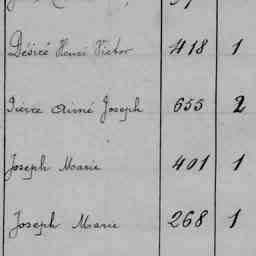 Désiré Henri Victor 418 1
Pierre Aimé Joseph 655 2
Joseph Marie 401 1
Joseph Marie 268 1